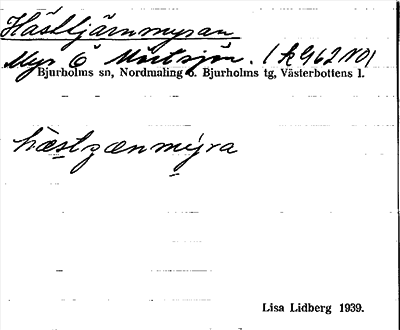 Hästtjärnmyran
Myr Ö Mörtsjön. (k 962 NO)
Bjurholms sn, Nordmaling o. Bjurholms tg, Västerbottens l.
Lisa Lidberg 1939.